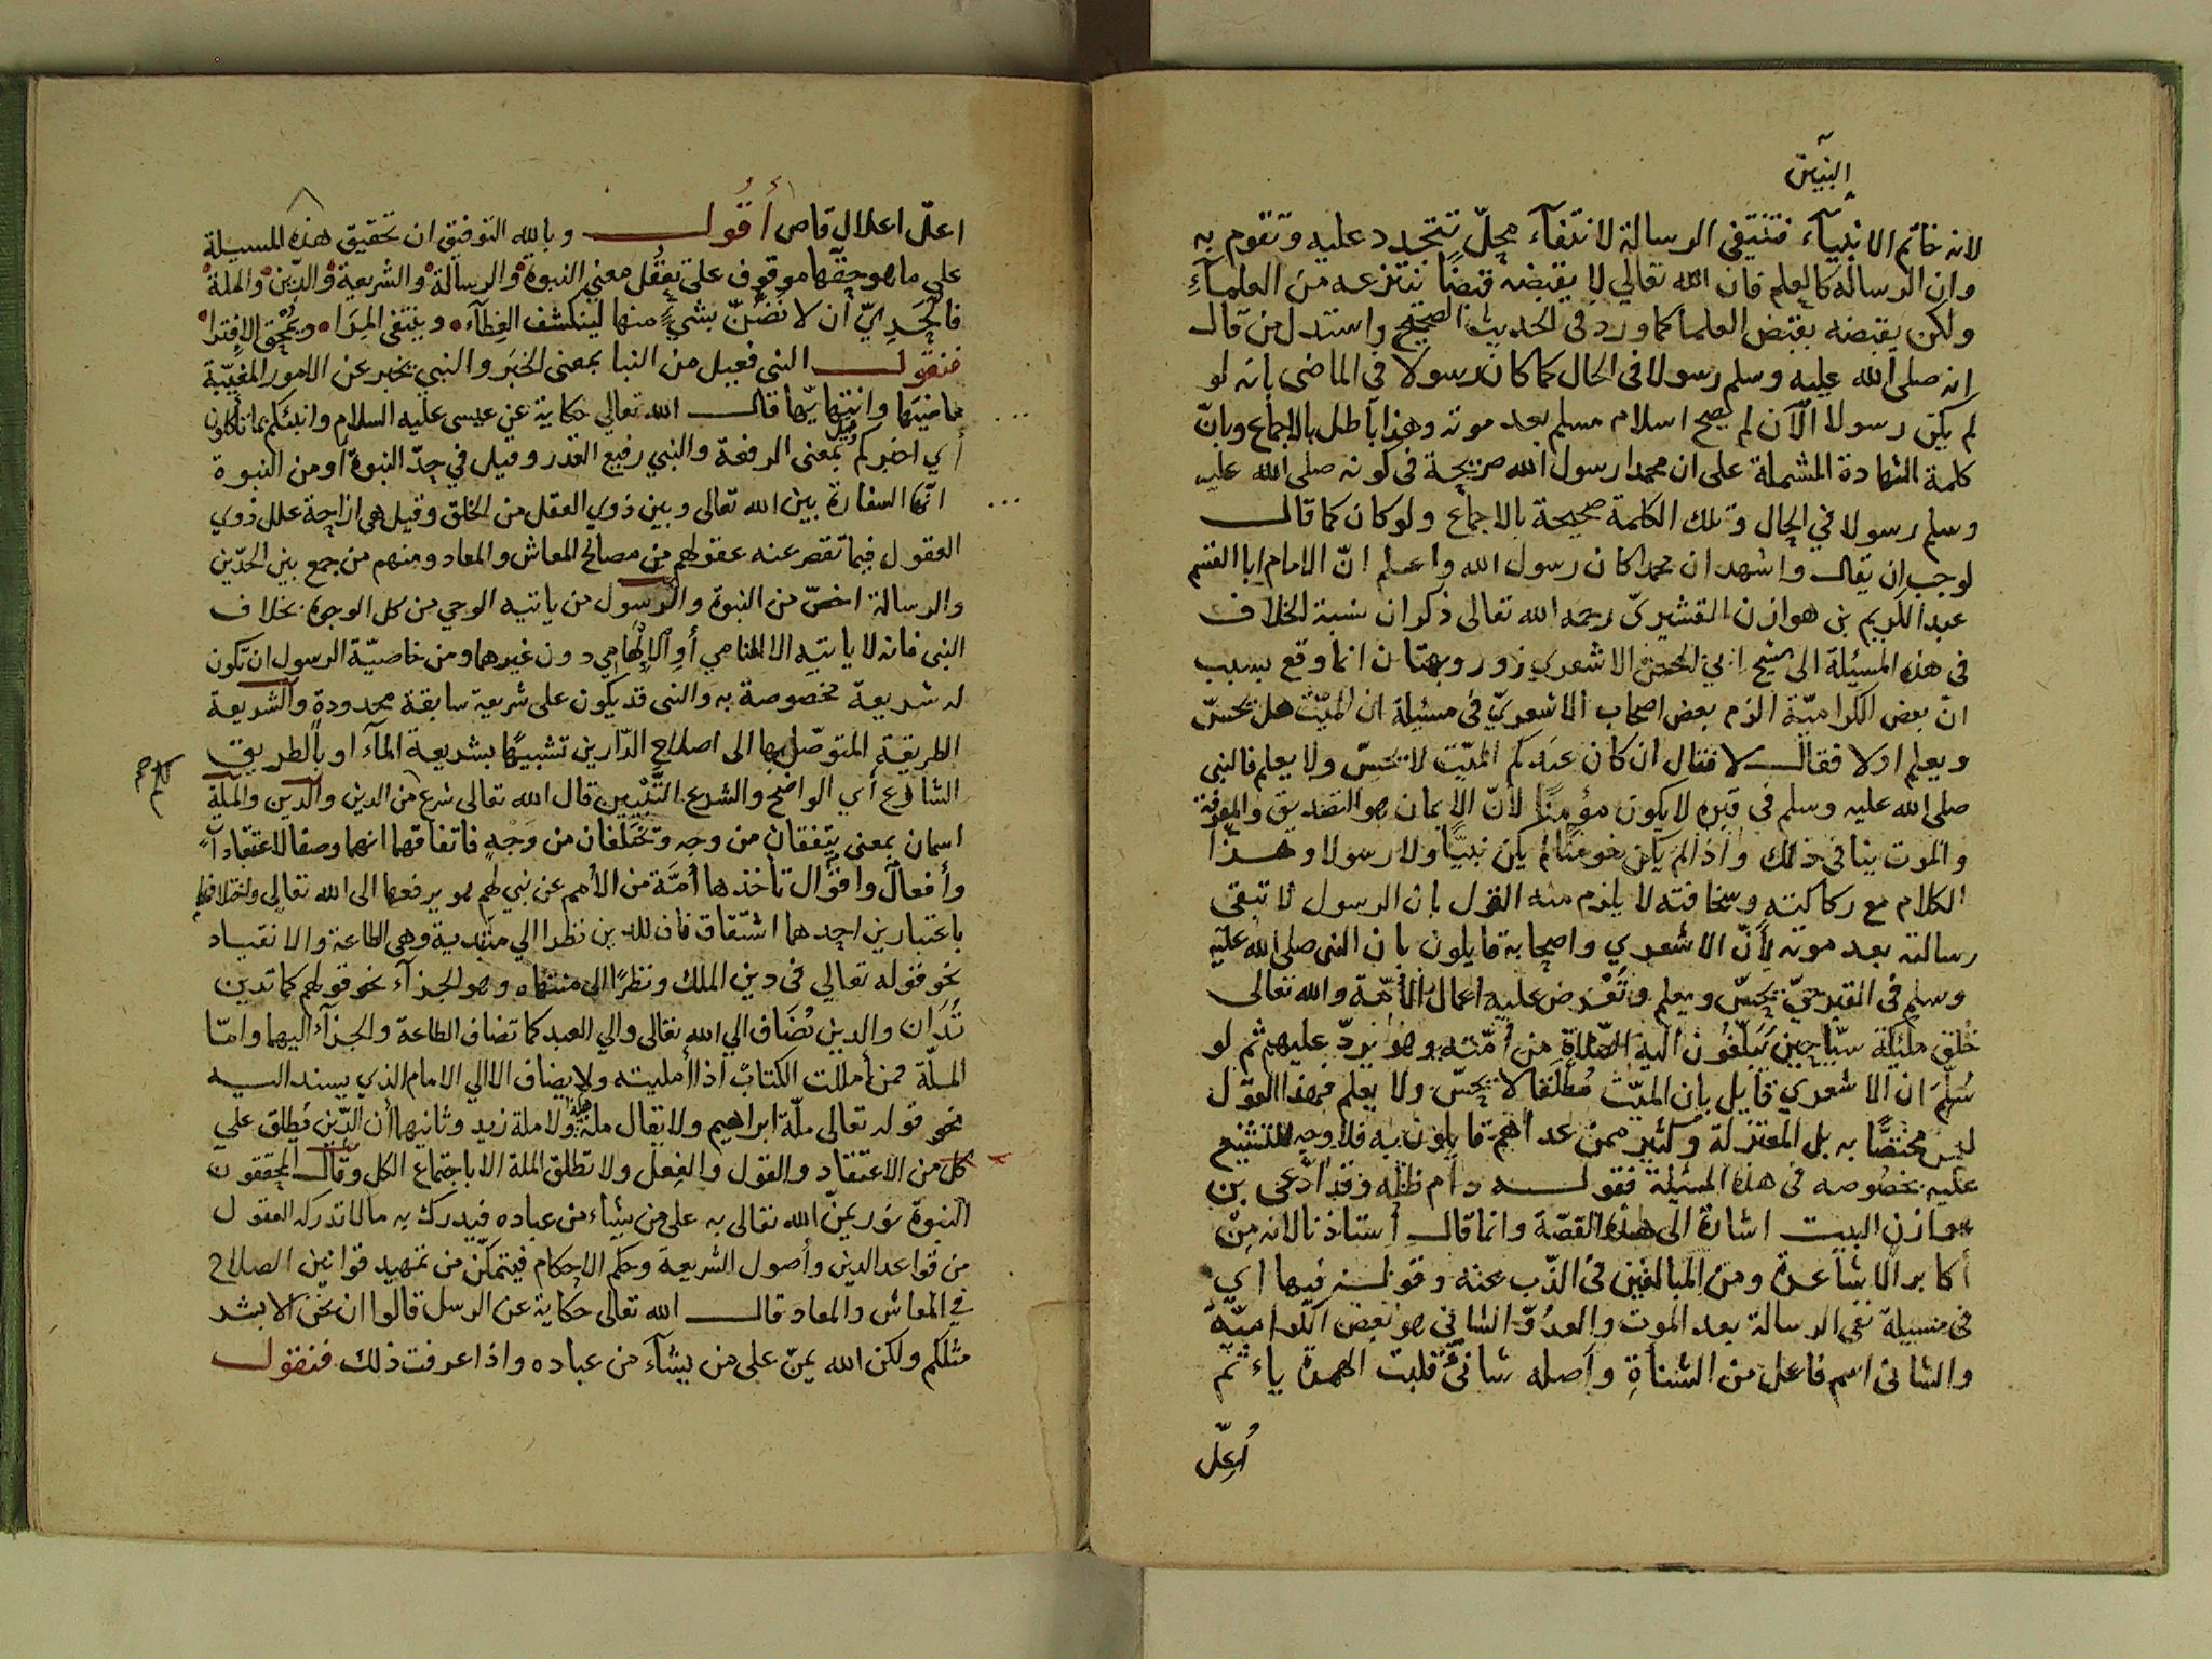 النبيين
لانه خاتم الانبياء فتنتفى الرسالة لانتفاء محلّ تتجدد عليه وتقوم به
وان الرسالة كالعلم فان الله تعالي لا يقبضه قبضًا ننتزعه من العلماءِ
ولكن يقبضه بقبض العلما كما ورد فى الحديث الصحيح واستدل من قال
انه صلى الله عليه وسلم رسولا فى الحال كما كان رسولا فى الماضى بانه لو
لم يكن رسولا الآن لم يصح اسلام مسلم بعد موته وهذا باطل بالاجماع وبانّ
كلمة الشهادة المشتملة على ان محمدا رسول الله صريحة فى كونه صلى الله عليه
وسلم رسولا في الحال وتلك الكلمة صحيحة بالاجماع ولو كان كما قال
لوجب ان يقال واشهد ان محمدا كان رسول الله واعلم انّ الامام ابا القسم
عبد الكريم بن هوازن القشيرىّ رحمه الله تعالى ذكر ان نسبة الخلاف
فى هذه المسئلة الى الشيخ ابي الحسن الاشعري زور وبهتان انما وقع بسبب
انّ بعض الكراميّة الزم بعض اصحاب الاشعريّ فى مسئلة ان الميّت هل يحسّ
ويعلم اولا فقال لا فقال ان كان عندكم الميّت لا يحسّ ولا يعلم فالنبى
صلى الله عليه وسلم فى قبره لا يكون مؤمنًا لأنّ الايمان هو التصديق والمعرفة
والموت ينافى ذلك واذا لم يكن مؤمنًا لم يكن نبيًّا ولا رسولا وهذا
الكلام مع ركاكته وسخافته لا يلزم منه القول بان الرسول لا تبقى
رسالته بعد موته لأنّ الاشعري واصحابه قايلون بان النبى صلى الله عليه
وسلم فى القبر حيّ يحسّ ويعلم وتُعْرض عليه اعمال الأُمّة والله تعالى
خلق مليكة سيّاحين يبلّغُون اليه الصّلاة من أمّته وهو يردّ عليهم ثم لو
سُلّمَ ان الاشعري قايل بان الميّت مُطلقا لا يحسّ ولا يعلم فهذا القول
ليس مختصًّا به بل المعتزلة وكثير ممن عداهم قايلون به فلا وجه للتشنيع
عليه بخصوصه فى هذه المسئلة فقوله دام ظلّه وقد ادّعى بن
هوازن البيت اشارة الى هذه القصّة وانما قال أستاذنا لانه مِنْ
أكابر الاشاعرة ومن المبالغين فى الذّب عنه وقوله فيها اي
فى مسيلة نفى الرسالة بعد الموت والعدُوّ الشانى هو بعض الكراميّة
والشانى اسم فاعل من الشناةِ وأصله شانئٌ قلبت الهمزة ياء ثم
أُعِلّ
اعلّ اعلال قاص أقول وبالله التوفيق ان تحقيق هذه المسيلة
على ما هو حقّها موقوف على تعقُّل معنى النبوة والرسالة والشريعة والدّين والملة
فالجَدِيّ أن لا نضُنّ بشىءٍ منها لينكشف الغِطآء وينتفى المِرَا ويُمْحَق الافترا
فنقول النبى فعيل من النبا بمعنى الخبَر والنبي يخبر عن الامور المغيّبة
ماضيَها وانتهايّها قال الله تعالي حكاية عن عيسى عليه السلام وانبئكم بما تأكلون
أي اخبركم وقيل بمعنى الرفعة والنبي رفيع القدر وقيل في حدّ النبوة أو من النبوة
انّها السفارة بين الله تعالى وبين ذوي العقل من الخلق وقيل هى ازاحة علل ذوي
العقول فيما تقصر عنه عقولهم من مصالح المعاش والمعاد ومنهم من جمع بين الحدّين
والرسالة اخصّ من النبوة والرسول من ياتيه الوحي من كل الوجوه بخلاف
النبى فانه لا ياتيه الا المنامي أوِ الالهامي دون غيرهما ومن خاصيّة الرسول ان تكون
له شريعة مخصوصة به والنبى قد يكون على شريعة سابقة محدودةٍ والشريعة
الطريقة المتوصّل بها الى اصلاح الدّارين تشبيهًا بشريعة المآء او بالطريق
الشارع أي الواضح والشرع التَّبْيِين قال الله تعالى شرع من الدين والدين والملّة
اسمان بمعنى يتّفقان من وجه وتختلفان من وجْهٍ فاتفاقهما انهما وصفا لاعتقاداتٍ
وأفعالٍ واقوال تأخذها أمَّة من الأمم عن نبي لهم يرفعها الى الله تعالي واختلافهما
باعتبارين احدهما اشتقاق فان للدين نظرا الي مبديه وهى الطاعة والانقياد
نحو قوله تعالي فى دين الملك ونظرًا الى منتهاه وهو الجزآء نحو قولهم كما تدين
تُدَان والدين يُضَاف الي الله تعالى والي العبد كما تضاف الطاعة والجزآء اليهما وامّا
الملّة فمن أمللت الكتاب اذا أمليته ولا يضاف الا الي الامام الذي يسند اليه
نحو قوله تعالى ملّة ابراهيم ولا يقال ملة الله ولا ملة زيد وثانيهما أن الدّين يُطلق على
كل من الاعتقاد والقول والفِعل ولا تطلق الملة الا باجتماع الكل وقال المحققون
النبوة نور يمنّ الله تعالى به على من يشاء من عباده فيدرك به ما لا تدركه العقول
من قواعد الدين وأصول الشريعة وحكم الاحكام فيتمكّن من تمهيد قوانين الصلاح
في المعاش والمعاد قال الله تعالى حكاية عن الرسل قالوا ان نحن الا بشر
مثلكم ولكن الله يمنّ على من يشآء من عباده واذا عرفت ذلك فنقول